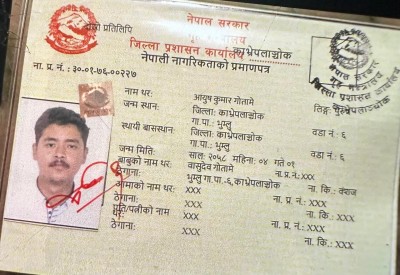 नेपाल सरकार
गृह मन्त्रालय
दोश्रो प्रतिलिपि
जिल्ला प्रशासन कार्यालय काभ्रेपलाञ्चोक
नेपाली नागरिकताको प्रमाणपत्र
ना. प्र. नं.: ३०-०१-७६-००२२७
नाम थर: आयुष कुमार गौतामे लिङ्ग: पुरुष
जन्म स्थान: जिल्ला: काभ्रेपलाञ्चोक
गा.पा.: भुम्लु वडा नं.: ६
स्थायी बासस्थान: जिल्ला: काभ्रेपलाञ्चोक
गा.पा.: भुम्लु वडा नं.: ६
जन्म मिति: साल: २०५८ महिना: ०४ गते ०१
बाबुको नाम थर: वासुदेव गौतामे ना.प्र.नं.: XXX
ठेगाना: भुम्लु गा.पा.-६,काभ्रेपलाञ्चोक ना. कि.: वंशज
आमाको नाम थर: XXX ना. प्र. नं.: XXX
ठेगाना: XXX ना. कि.: XXX
पति/पत्नीको नाम थर: XXX ना. प्र. नं.: XXX
ठेगाना: XXX ना. कि.: XXX
नेपाल सरकार
गृह मन्त्रालय
जिल्ला प्रशासन कार्यालय
काभ्रेपलाञ्चोक